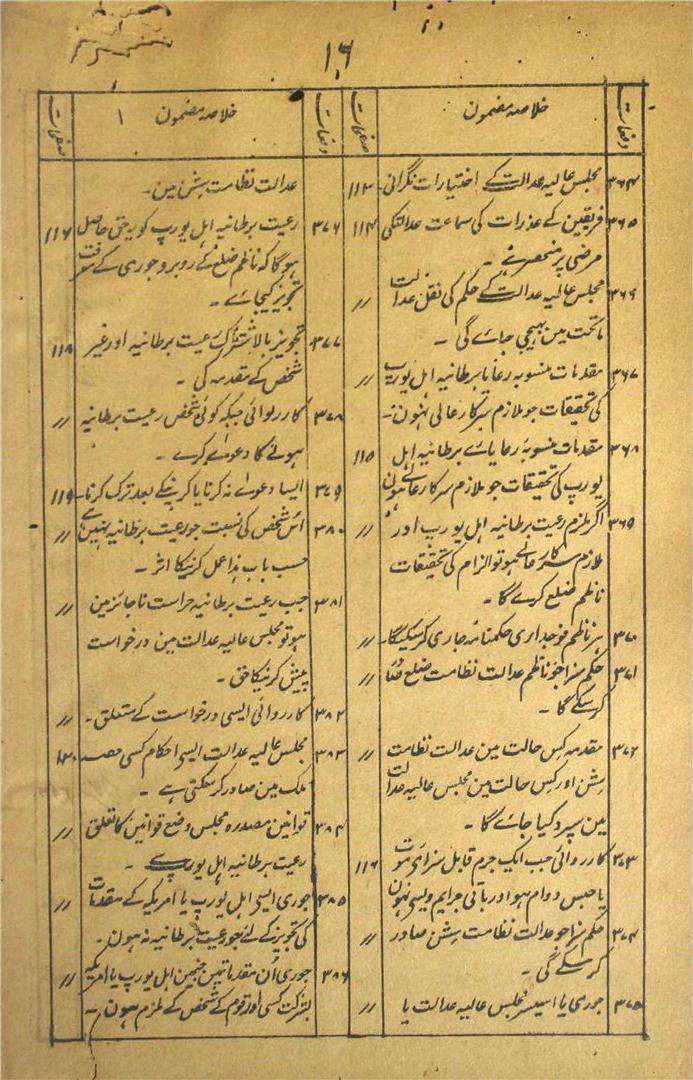 ۱۶
دفعات خلاصہ مضمون صفحات
۳۶۴ مجلس عالیہ عدالت کے اختیارات نگرانی۔ ۱۱۳
۳۶۵ فریقین کے عذرات کی سماعت عدالتکی ۱۱۴
مرضی پر منحصر ہے۔
۳۶۶ مجلس عالیہ عدالت کے حکم کی نقل عدالت 〃
ماتحت مین بھیجی جائے گی۔
۳۶۷ مقدمات منسوبہ رعایا برطانیہ اہل یورپ 〃
کی تحقیقات جو ملازم سرکار عالی نہون۔
۳۶۸ مقدمات منسوبہ رعایاے برطانیہ اہل ۱۱۵
یورپ کی تحقیقات جو ملازم سرکار عالی ہون
۳۶۹ اگر ملزم رعیت برطانیہ اہل یورپ اور 〃
ملازم سرکار عالی ہو تو الزام کی تحقیقات
ناظم ضلع کرے گا۔
۳۷۰ ہر ناظم فوجداری حکمنامہ جاری کرسکیگا۔ 〃
۳۷۱ حکم سزا جو ناظم عدالت نظامت ضلع صادر 〃
کرسکے گا۔
۳۷۲ مقدمہ کس حالت مین عدالت نظامت 〃
سشن اور کس حالت مین مجلس عالیہ عدالت
مین سپرد کیا جائے گا۔
۳۷۳ کارروائی جب ایک جرم قابل سزاے موت ۱۱۶
یا حبس دوام ہو اور باقی جرایم ویسے نہون
۳۷۴ حکم سزا جو عدالت نظامت سشن صادر 〃
کرسکے گی۔
۳۷۵ جوری یا اسیسر مجلس عالیہ عدالت یا 〃
دفعات خلاصہ مضمون صفحات
عدالت نظامت سشن مین۔
۳۷۶ رعیت برطانیہ اہل یورپ کو یہ حق حاصل ۱۱۶
ہوگا کہ ناظم ضلع کے روبرو جوری کے معرفت
تجویز کیجاے۔
۳۷۷ تجویز بالاشتراک رعیت برطانیہ اور غیر ۱۱۸
شخص کے مقدمہ کی۔
۳۷۸ کارروائی جبکہ کوئی شخص رعیت برطانیہ 〃
ہونے کا دعوے کرے۔
۳۷۹ ایسا دعوے نہ کرنا یا کرنیکے بعد ترک کرنا۔ ۱۱۹
۳۸۰ اس شخص کی نسبت جو رعیت برطانیہ نہین ہے 〃
حسب باب ہذا عمل کرنیکا اثر۔
۳۸۱ جب رعیت برطانیہ حراست ناجائز مین 〃
ہو تو مجلس عالیہ عدالت مین درخواست
پیش کرنیکا حق۔
۳۸۲ کارروائی ایسی درخواست کے متعلق۔ 〃
۳۸۳ مجلس عالیہ عدالت ایسے احکام کسی حصہ ۱۲۰
ملک مین صادر کرسکتی ہے۔
۳۸۴ قوانین مصدرہ مجلس وضع قوانین کا تعلق 〃
رعیت برطانیہ اہل یورپ سے۔
۳۸۵ جوری ایسے اہل یورپ یا امریکہ کے مقدمات 〃
کی تجویز کے لئے جو رعیت برطانیہ نہ ہون۔
۳۸۶ جوری اُن مقدمات مین جنمین اہل یورپ یا امریکہ 〃
بشرکت کسی اور قوم کے شخص کے ملزم ہون۔